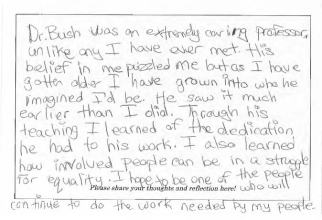 Dr. Bush was an extremely caring professor,
unlike any I have ever met. His
belief in me puzzled me but as I have
gotten older I have grown into who he
imagined I'd be. He saw it much
earlier than I did. Through his
teaching I learned of the dedication
he had to his work. I also learned
how involved people can be in a struggle
for equality. I hope to be one of the people
who will
Please share your thoughts and reflection here!
continue to do the work needed by my people.